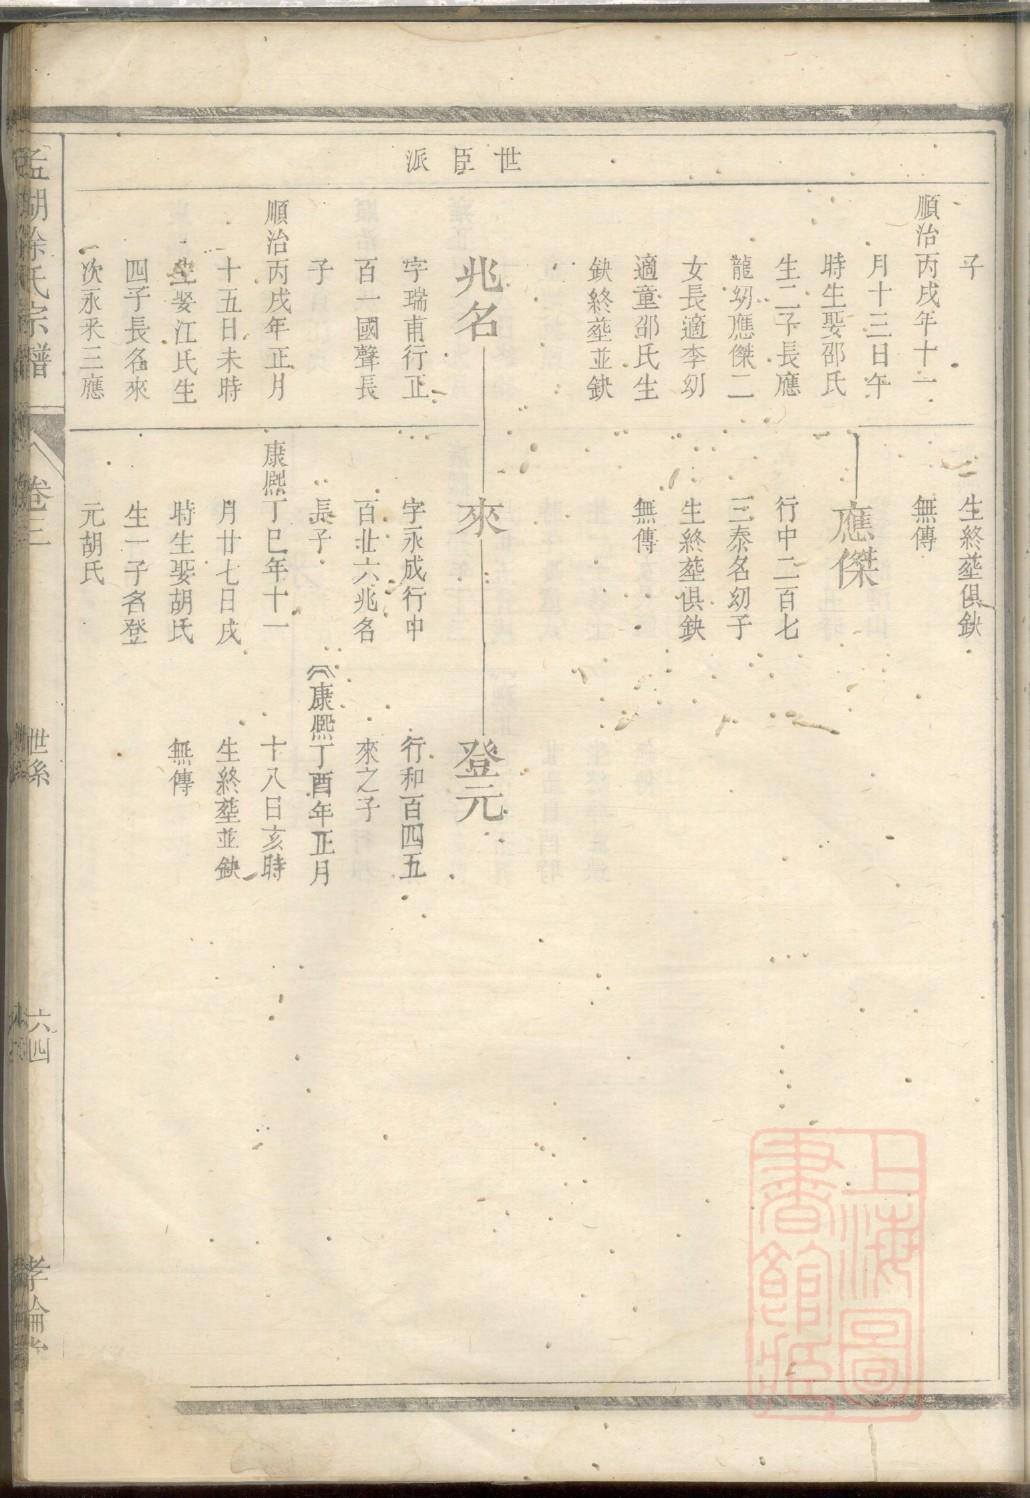 世臣派
子
順治丙戌年十一
月十三日午
時生娶邵氏
生二子長應
龍幼應傑二
女長適李幼
適童邵氏生
鈌終塟並鈌
兆名
字瑞甫行正
百一國聲長
子
順治丙戌年正月
十五日未時
生娶江氏生
四子長名來
次永釆三應
生終塟俱鈌
無傳
應傑
行中二百七
三泰名幼子
生終塟俱鈌
無傳
來
字永成行中
百廿六兆名
長子
康熙丁巳年十一
月廿七日戌
時生娶胡氏
生一子名登
元胡氏
登元
行和百四五
來之子
康熙丁酉年正月
十八日亥時
生終塟並鈌
無傳
孟湖徐氏宗譜
卷三
世系
六四
孝倫堂
上海圖
書館藏